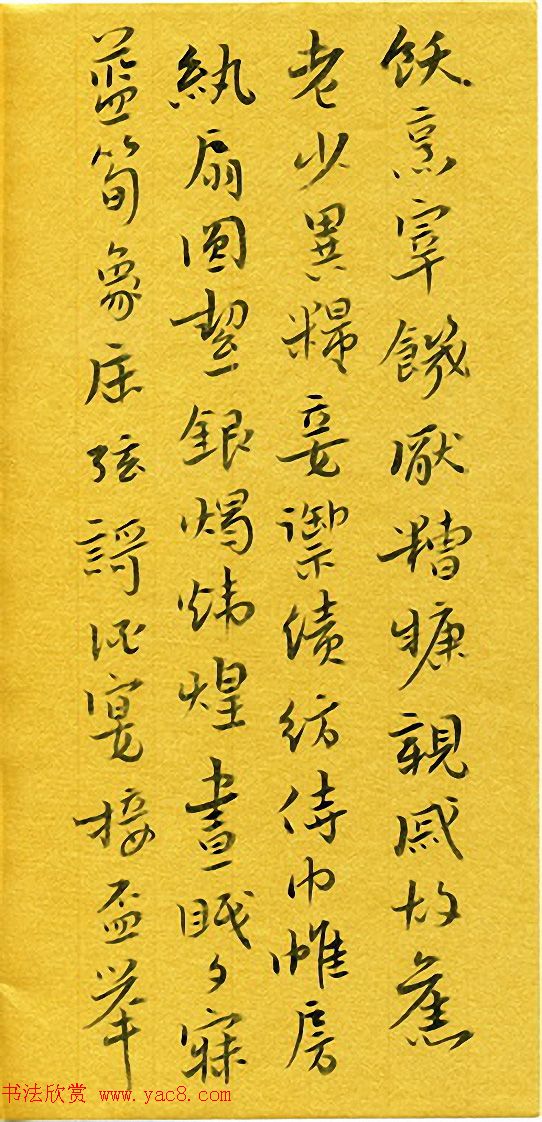 飫烹宰饑厭糟糠親戚故舊
老少異糧妾禦績紡侍巾帷房
紈扇圓絜銀燭煒煌晝眠夕寐
藍筍象床弦謌酒宴接盃舉
书法欣赏 www.yac8.com